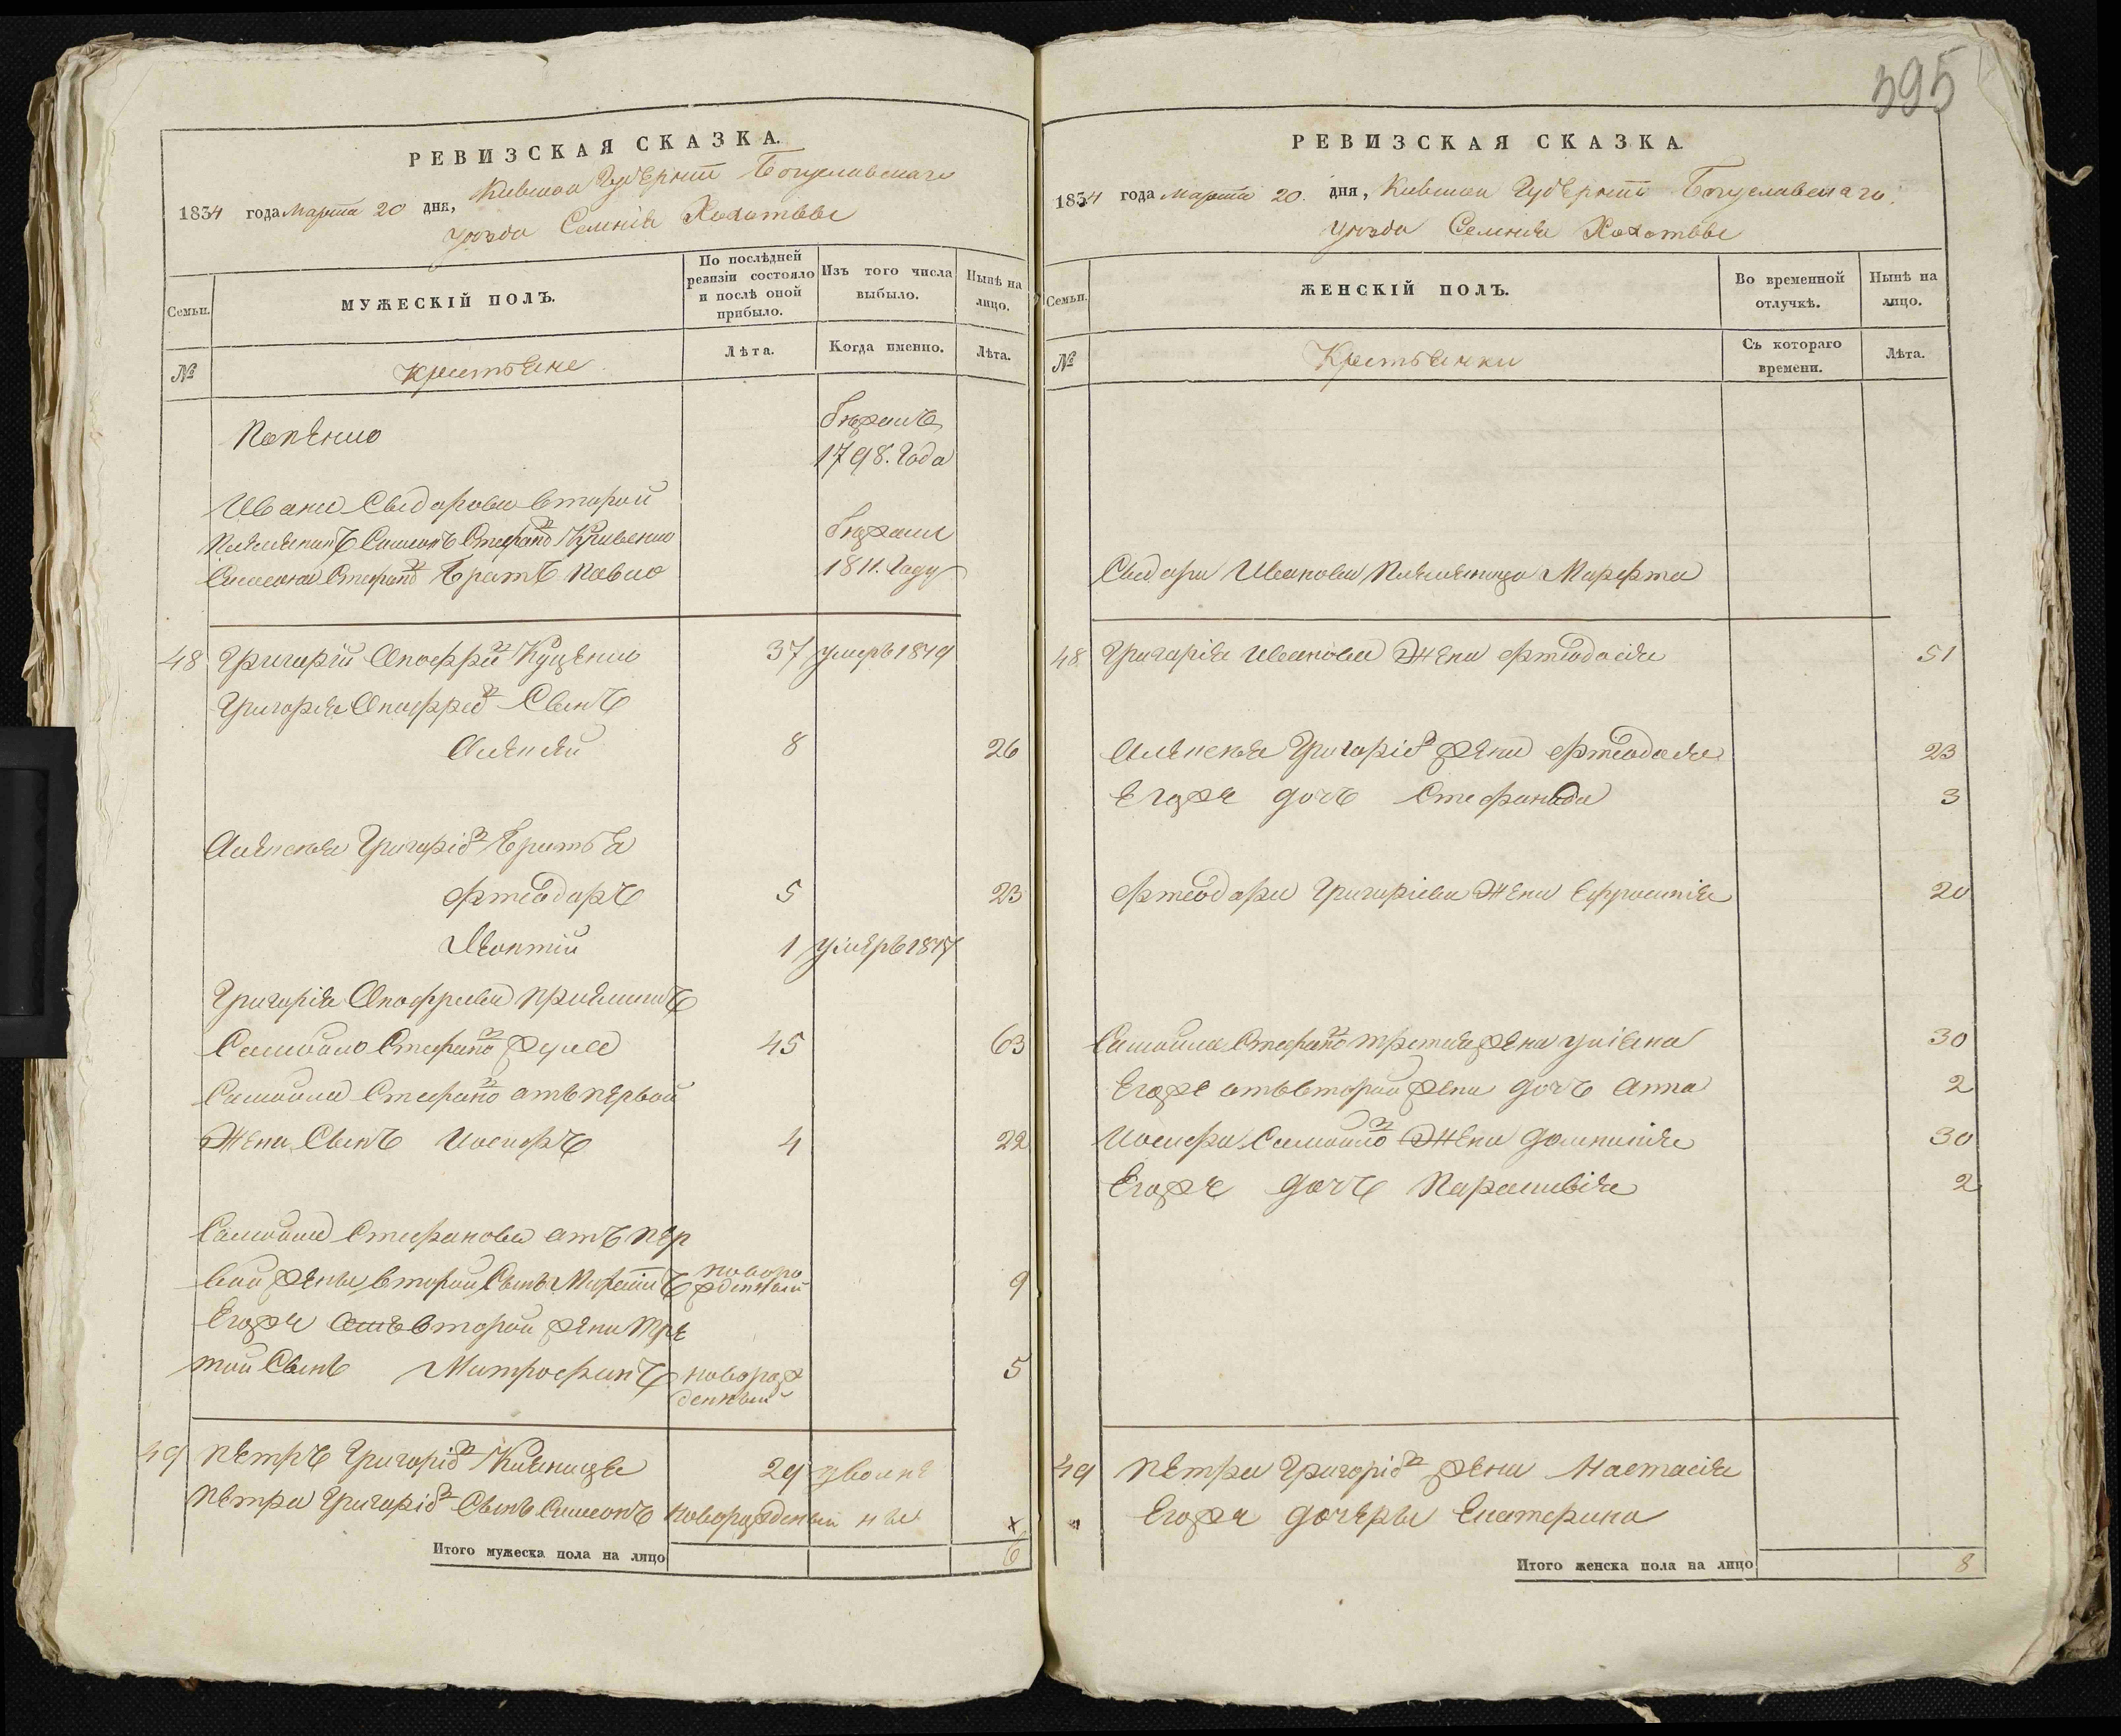 395
РЕВИЗСКАЯ СКАЗКА.
1834 года Марта 20 дня, Киевской Губернїи Богуславскаго
уезда Селенія Хохотвы
Семьи.
МУЖЕСКІЙ ПОЛЪ.
По послѣдней ревизіи состояло и послѣ оной прибыло.
Изъ того числа выбыло.
Нынѣ на лицо.
№
Крестьяне
Лѣта.
Когда именно.
Лѣта.
бѣжалъ
1798. Года
Ивана Сыдорова второй
племеникъ Самсонъ Кривенко бѣжали
братъ Павло 1811. Году
48 Григорій Кущенко 37 умеръ 1819
Григорія Сынъ
Алексѣй 8 26
Алексѣя Григоріе братья
Фтеодоръ 5 23
Леонтій 1 умеръ
Григорія Онофріева
Самойло Стефано 45 63
Самойла Стефано отъ первой
Жены Сынъ Иосифъ 4 22
Самойла Стефанова отъ пер
вой жены второй Сынъ новоро
жденный 9
Егожъ второй жены тре
тій Сынъ Митрофанъ новорож
денный 5
49 Петръ Григоріе 29 двоине
Петра Григоріе Сынъ Симеонъ новорожденный ны х
Итого мужеска пола на лицо 6
РЕВИЗСКАЯ СКАЗКА.
1834 года Марта 20. дня, Киевской Губернїи Богуславскаго
уезда Селенія Хохотвы
Семьи.
ЖЕНСКІЙ ПОЛЪ.
Во временной отлучкѣ.
Нынѣ на лицо.
№
Крестьянки
Съ котораго времени.
Лѣта.
Сыдора Иванова племеница Марфта
48 Григорія Иванова Жена Фтеодосія 51
Алексѣя Григоріе жена Фтеодосія 23
Егоже дочь Стефанида 3
Фтеодора Григоріева Жена Ефросинія 20
Самойла Стефано третія жена Уліяна 30
Егоже отъ второй жены дочь Анна 2
Иосифа Самойло Жена Домникія 30
Егоже дочь Параскивія 2
49 Петра Григоріе жена Настасія
Егоже дочеры Екатерина
Итого женска пола на лицо 8